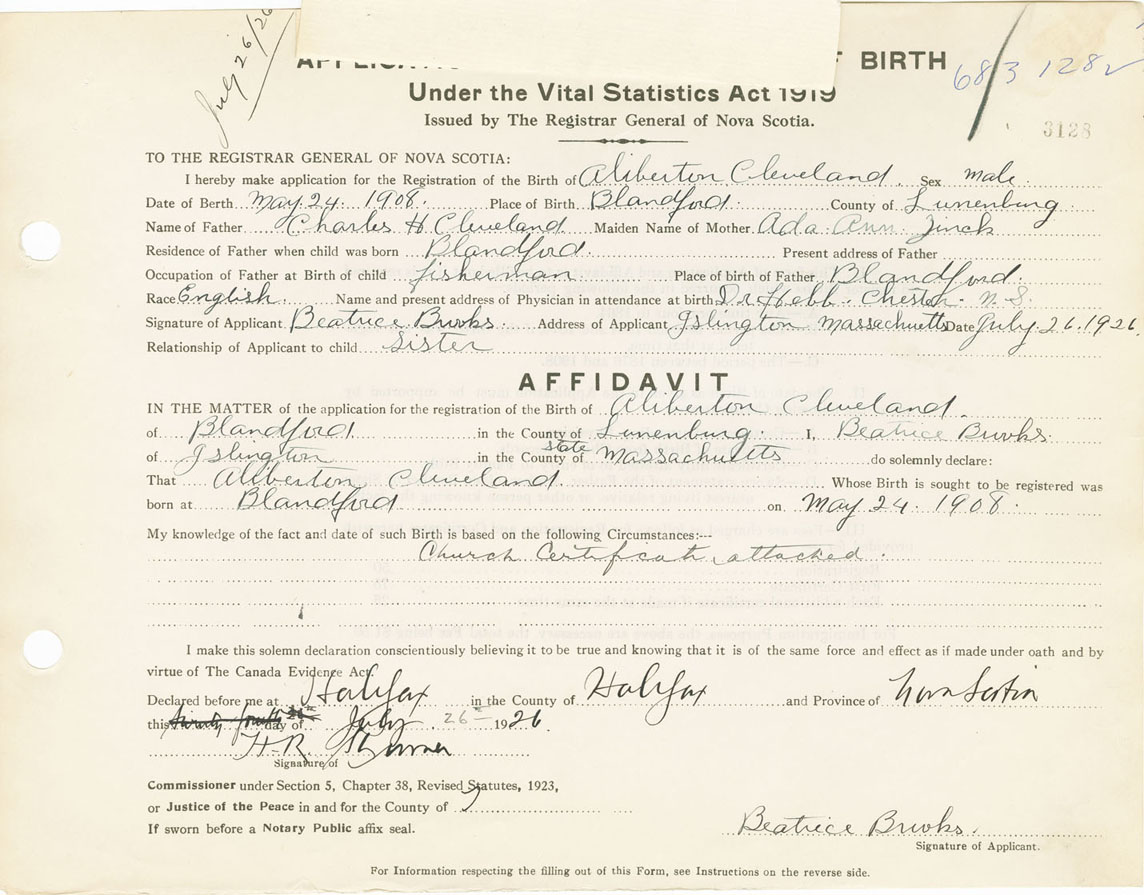 July 26/26
OF BIRTH
683 1282
Under the Vital Statistics Act 1919
Issued by The Registrar General of Nova Scotia.
3128
TO THE REGISTRAR GENERAL OF NOVA SCOTIA:
I hereby make application for the Registration of the Birth of Aliberton Cleveland. Sex male.
Date of Berth May 24. 1908. Place of Birth Blandford. County of Lunenburg.
Name of Father Charles H Cleveland Maiden Name of Mother Ada Ann Zinck
Residence of Father when child was born Blandford. Present address of Father
Occupation of Father at Birth of child fisherman Place of birth of Father Blandford.
Race English. Name and present address of Physician in attendance at birth Dr. Hebb. Chester. N.S.
Signature of Applicant Beatrice Brooks. Address of Applicant Islington Massachusetts Date July. 26. 1926.
Relationship of Applicant to child Sister
AFFIDAVIT
IN THE MATTER of the application for the registration of the Birth of Aliberton Cleveland.
of Blandford in the County of Lunenburg. I, Beatrice Brooks.
of Islington in the County of state Massachusetts do solemnly declare:
That Aliberton Cleveland. Whose Birth is sought to be registered was
born at Blandford on May 24. 1908.
My knowledge of the fact and date of such Birth is based on the following Circumstances:--
Church Certificate attached.
I make this solemn declaration conscientiously believing it to be true and knowing that it is of the same force and effect as if made under oath and by
virtue of The Canada Evidence Act.
Declared before me at Halifax in the County of Halifax and Province of Nova Scotia
this twenty fourth day of July 26- 1926.
H. R.
Signature of
Commissioner under Section 5, Chapter 38, Revised Statutes, 1923,
or Justice of the Peace in and for the County of
If sworn before a Notary Public affix seal.
Beatrice Brooks.
Signature of Applicant.
For Information respecting the filling out of this Form, see Instructions on the reverse side.